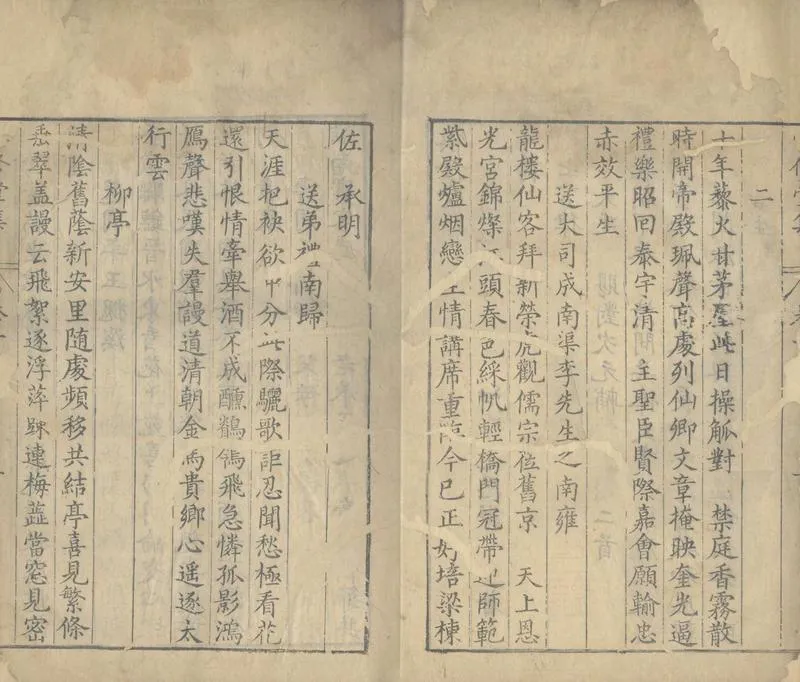 二
十年藜火廿茅屋此日操觚對 禁庭香霧散
時開帝殿珮聲高處列仙卿文章掩映奎光逼
禮樂昭回泰宇清 主聖臣賢際嘉會願輸忠
赤效平生
送大司成南渠李先生之南雍
龍樓仙客拜新榮虎觀儒宗位舊京 天上恩
光宮錦燦 頭春色綵帆輕橋門冠帶 師範
紫殿爐烟戀 情講席重臨今已正 培梁棟
佐 承明
送弟 南歸
天涯把袂欲 分此際驪歌詎忍聞愁極看花
還引恨情牽舉酒不成醺鶺鴒飛急憐孤影鴻
鴈聲悲嘆失羣謾道清朝金馬貴鄉心遥逐太
行雲
柳亭
清陰舊蔭新安里随處頻移共結亭喜見繁條
垂翠盖謾云飛絮逐浮萍 連梅蘂當窓見密